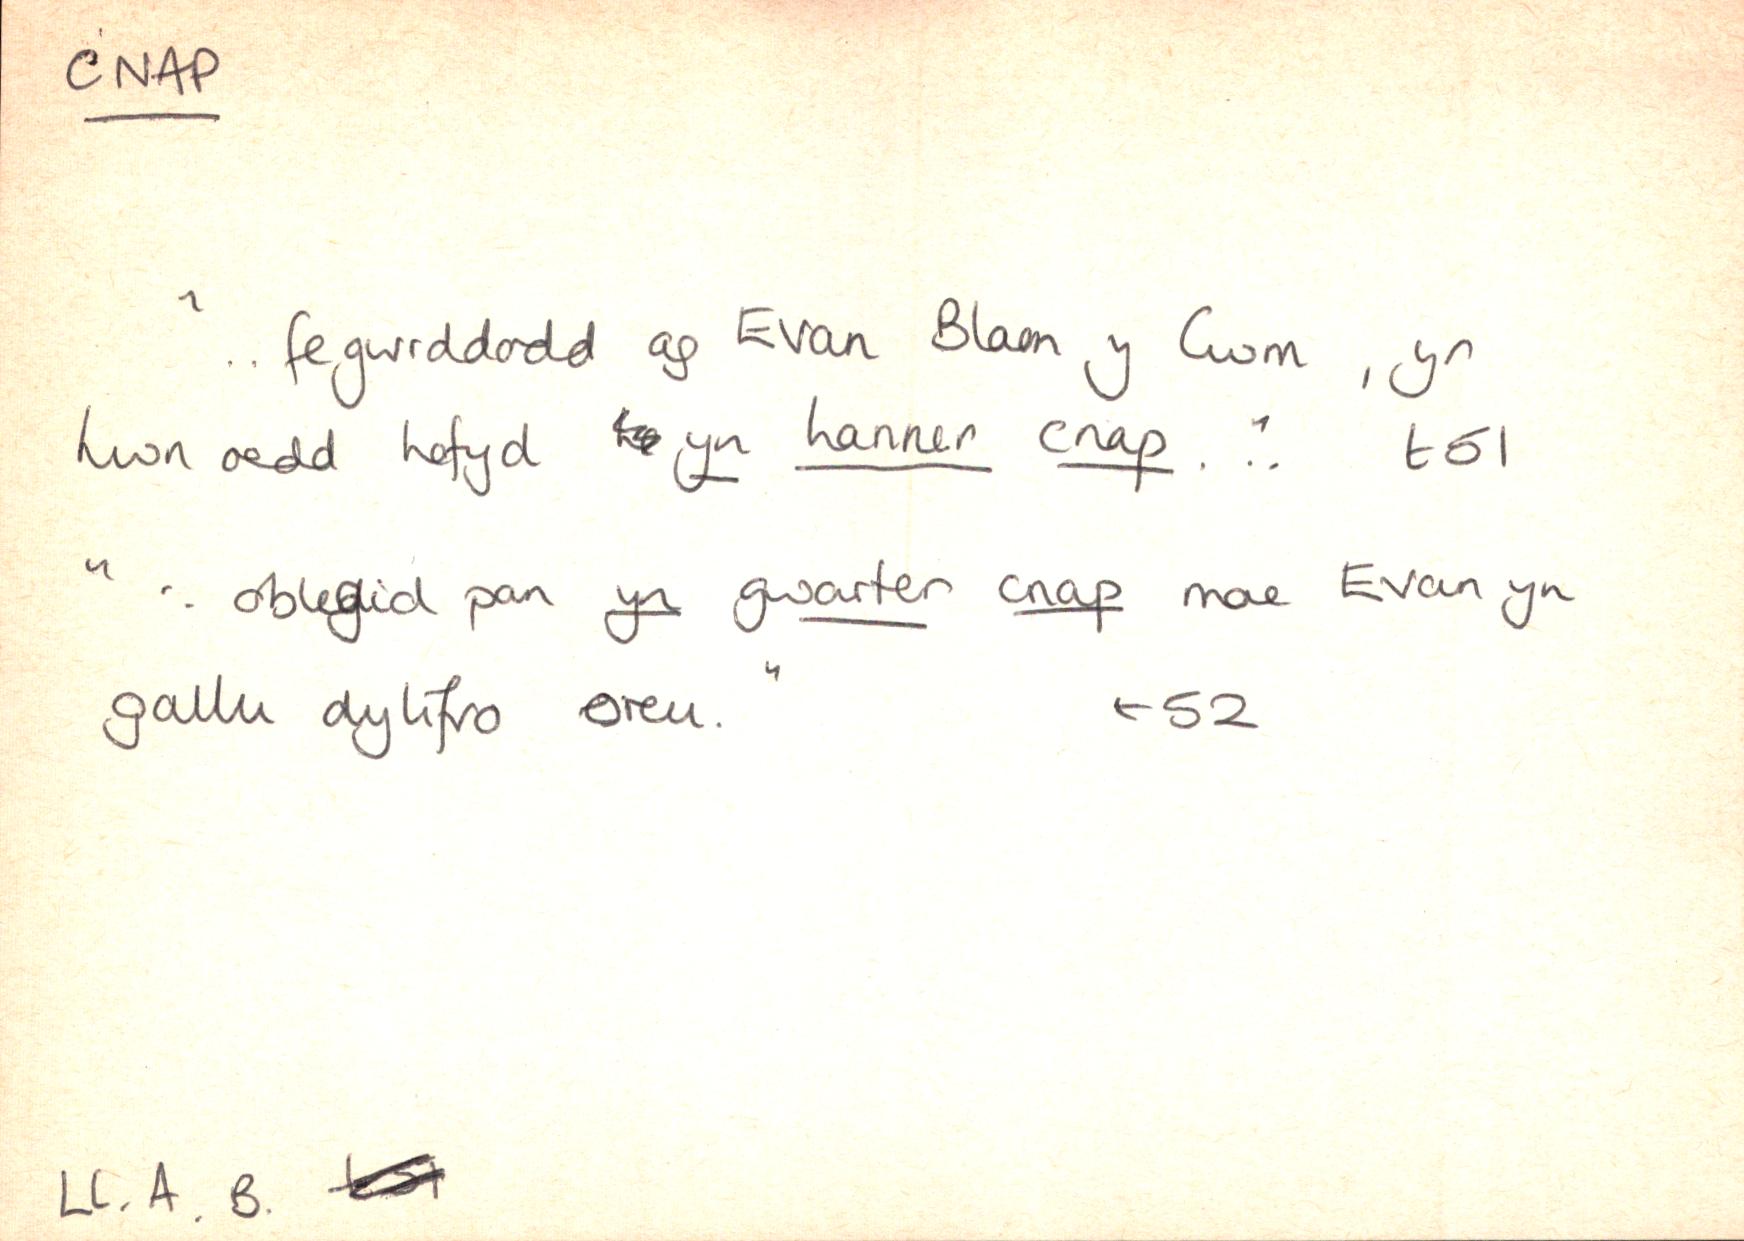 CNAP
".. fe gwrddodd ag Evan Blaen y Cwm, yr
hwn oedd hefyd yn hanner cnap..." t51
".. oblegid pan yn gwarter cnap mae Evan yn
gallu dylifro oreu." t52
Ll. A. B.